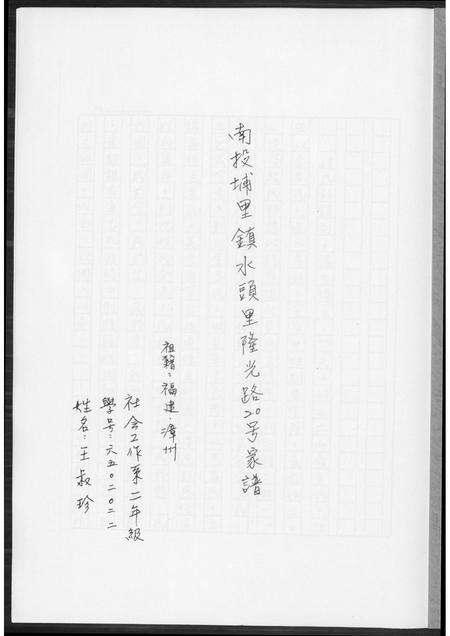 南投埔里鎮水頭里隆光路20号家譜
祖籍：福建．漳州
社会工作系二年級
學号：六五〇二〇二二
姓名：王叔珍